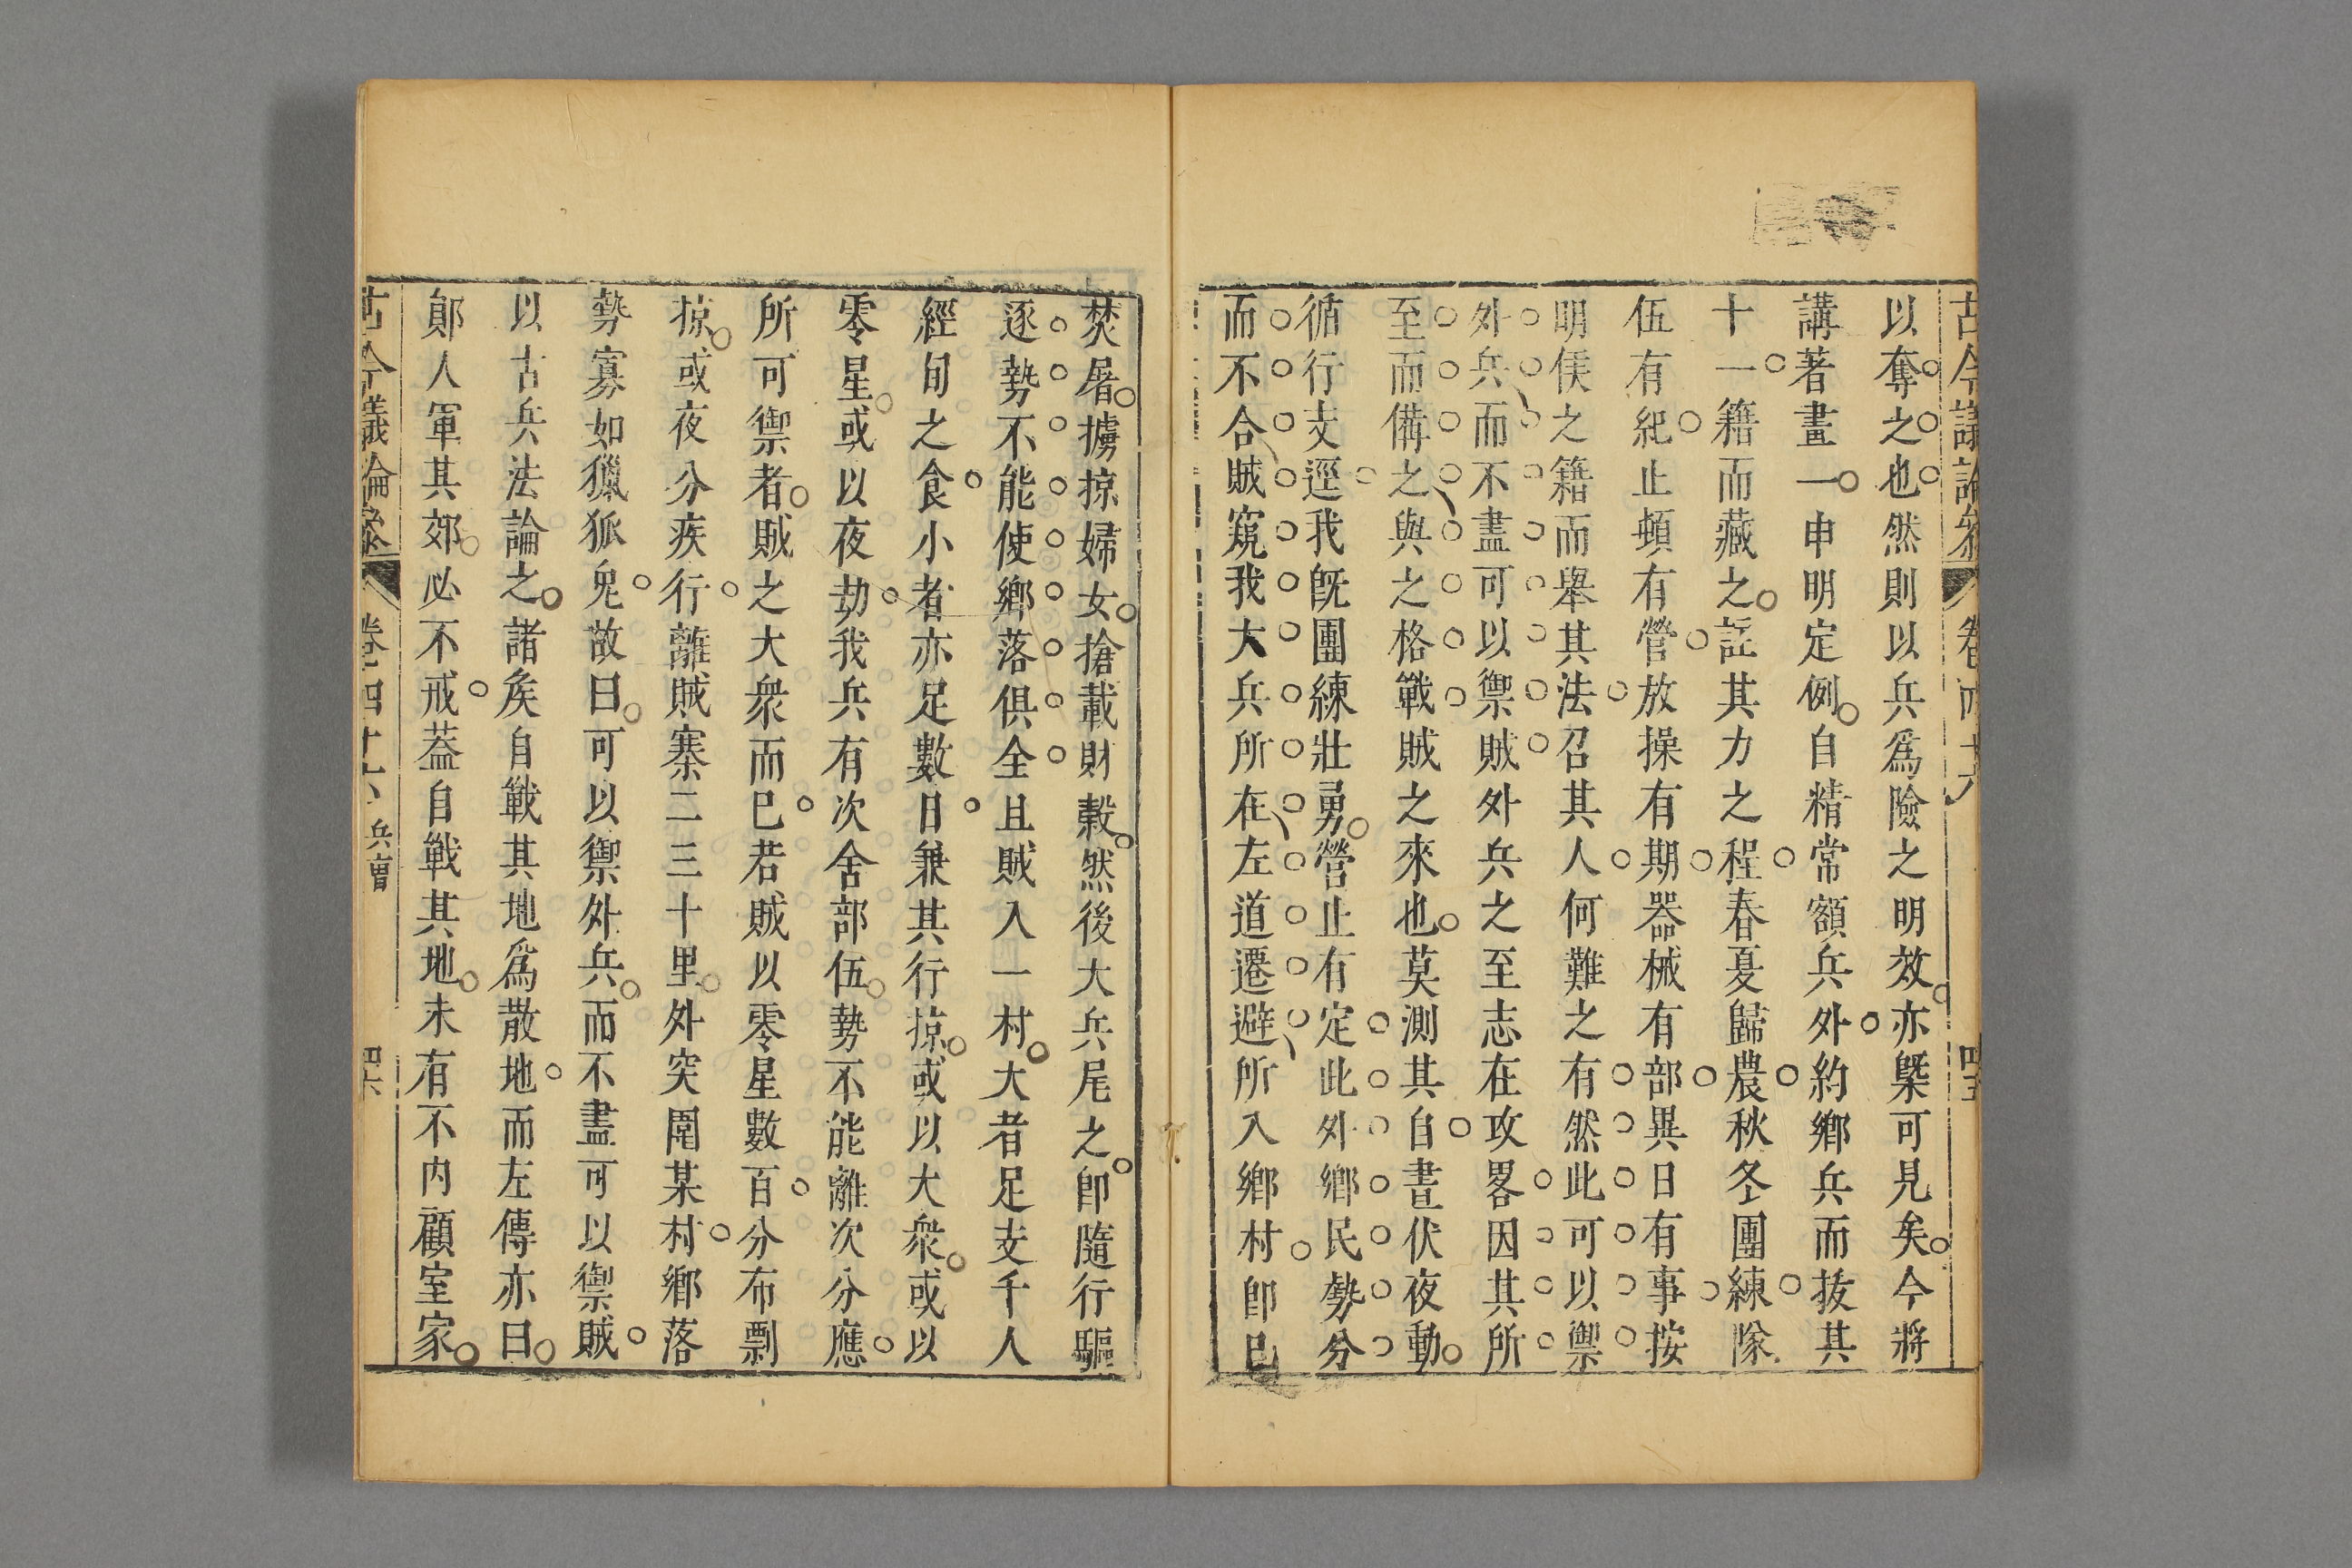 古今議論參 卷四十六
以奪之也然則以兵爲險之明效亦槩可見矣今將
講著畫一申明定例自精常額兵外約鄉兵而拔其
十一籍而藏之証其力之程春夏歸農秋冬團練隊
伍有紀止頓有營放操有期器械有部異日有事按
明倿之籍而舉其法召其人何難之有然此可以禦
外兵而不盡可以禦賊外兵之至志在攻畧因其所
至而備之與之格戰賊之來也莫測其自晝伏夜動
循行支逕我旣團練壯勇營止有定此外鄉民勢分
而不合賊窺我大兵所在左道遷避所入鄉村卽已
焚屠擄掠婦女搶載財穀然後大兵尾之卽隨行驅
逐勢不能使鄉落俱全且賊入一村大者足支千人
經旬之食小者亦足數日兼其行掠或以大衆或以
零星或以夜劫我兵有次舍部伍勢不能離次分應
所可禦者賊之大衆而已若賊以零星數百分布剽
掠或夜分疾行離賊寨二三十里外突圍某村鄉落
勢寡如獵狐兔故曰可以禦外兵而不盡可以禦賊
以古兵法論之諸矦自戰其地爲散地而左傳亦曰
鄖人軍其郊必不戒葢自戰其地未有不內顧室家
古今議論參 卷四十六 兵曹 四六